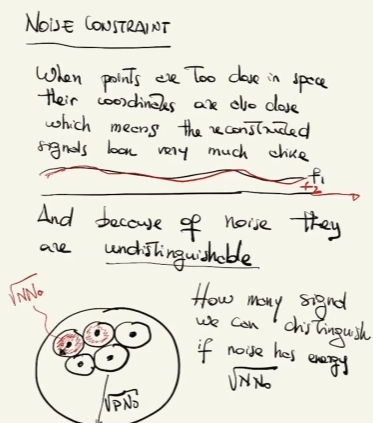 NOISE CONSTRAINT
When points are too close in space
their coordinates are also close
which means the reconstructed
signals look very much alike
f₁
f₂
And because of noise they
are undistinguishable
√NN₀
How many signal
we can distinguish
if noise has energy
√NN₀
√PN₀